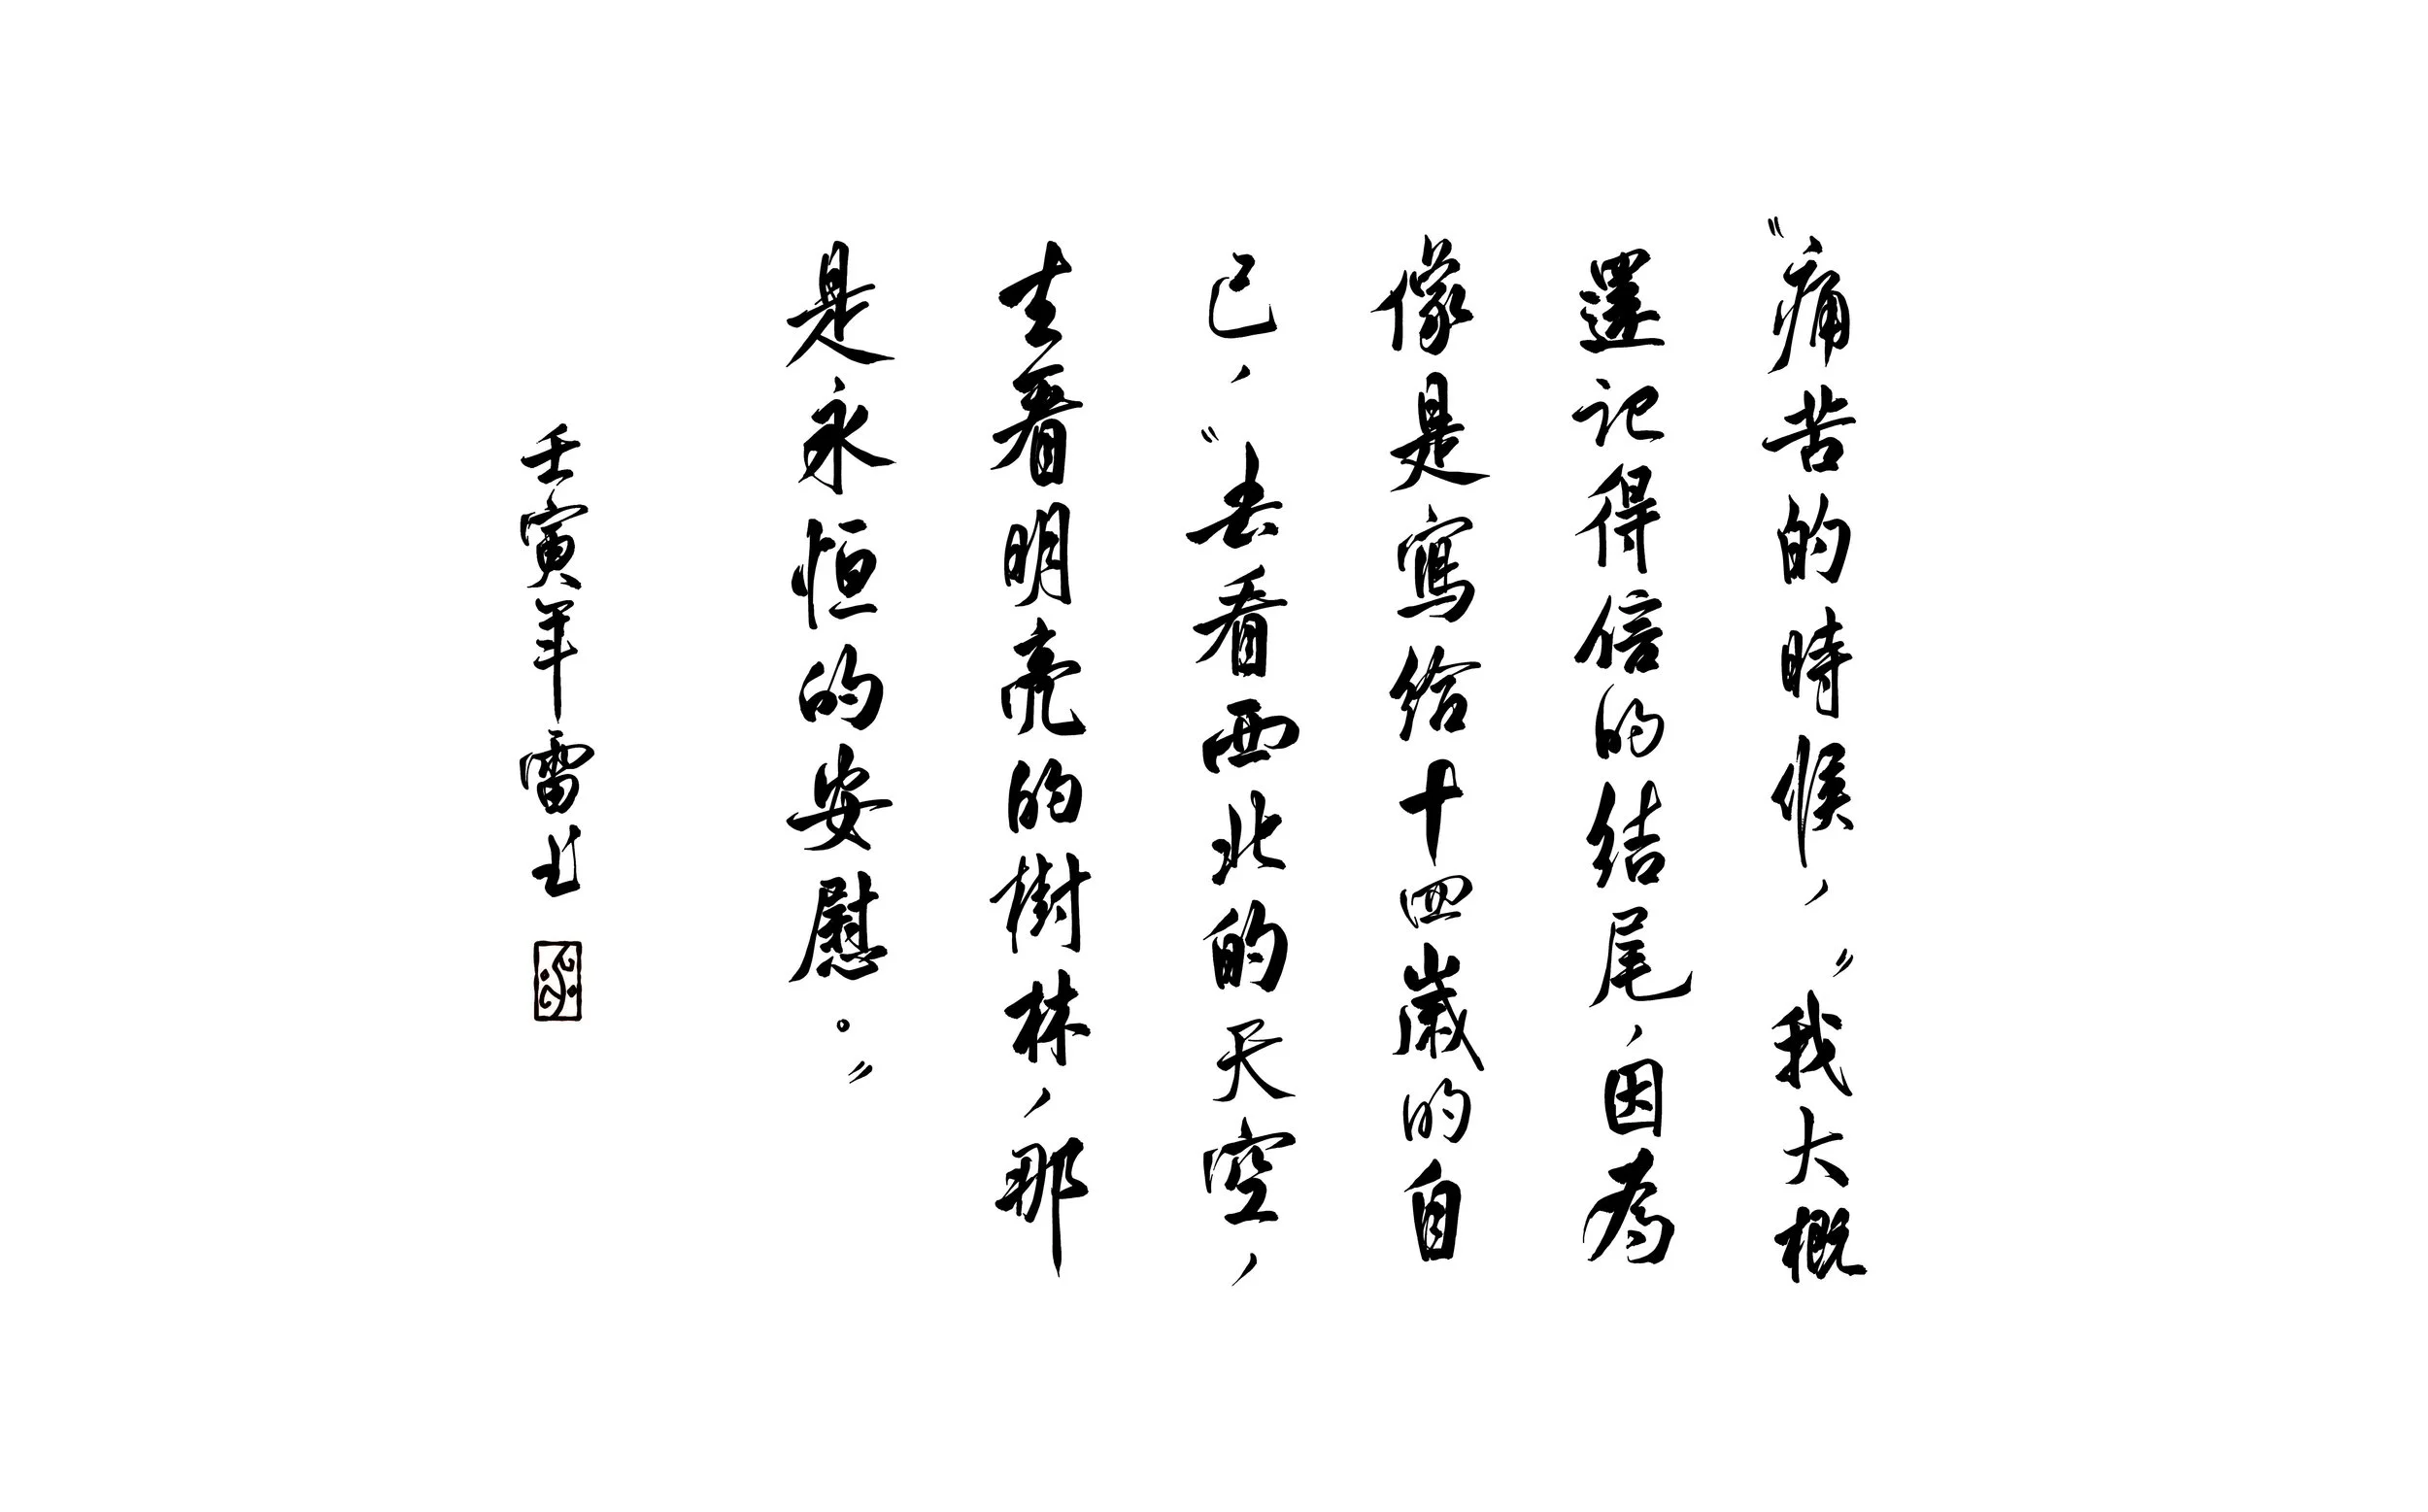 “痛苦的時候，”我大概
還記得信的結尾，因為
像是寫給十四歲的自
己，“去看西北的天空，
去看明亮的樹林，那
是永恒的安慰。”
壬寅年雷山